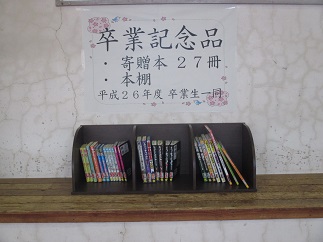 卒業記念品
・寄贈本 27冊
・本棚
平成26年度 卒業生一同